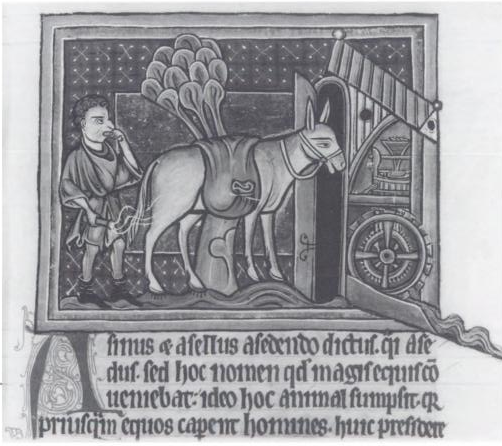 Asinus & asellus asedendo dictus. qi ase
dus. sed hoc nomen qd magis equis cō
ueniebat: ideo hoc animal sumpsit. qr
priusqm equos capent homines. huic presidere